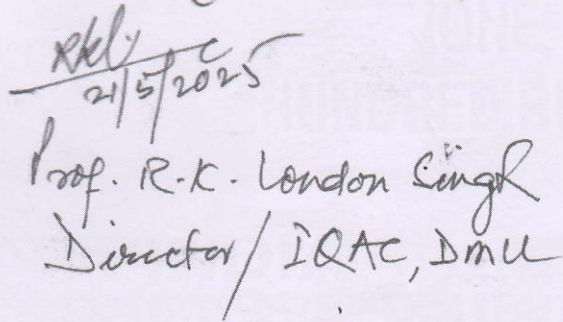 21/5/2025
Prof. R.K. London Singh
Director/IQAC, DMU